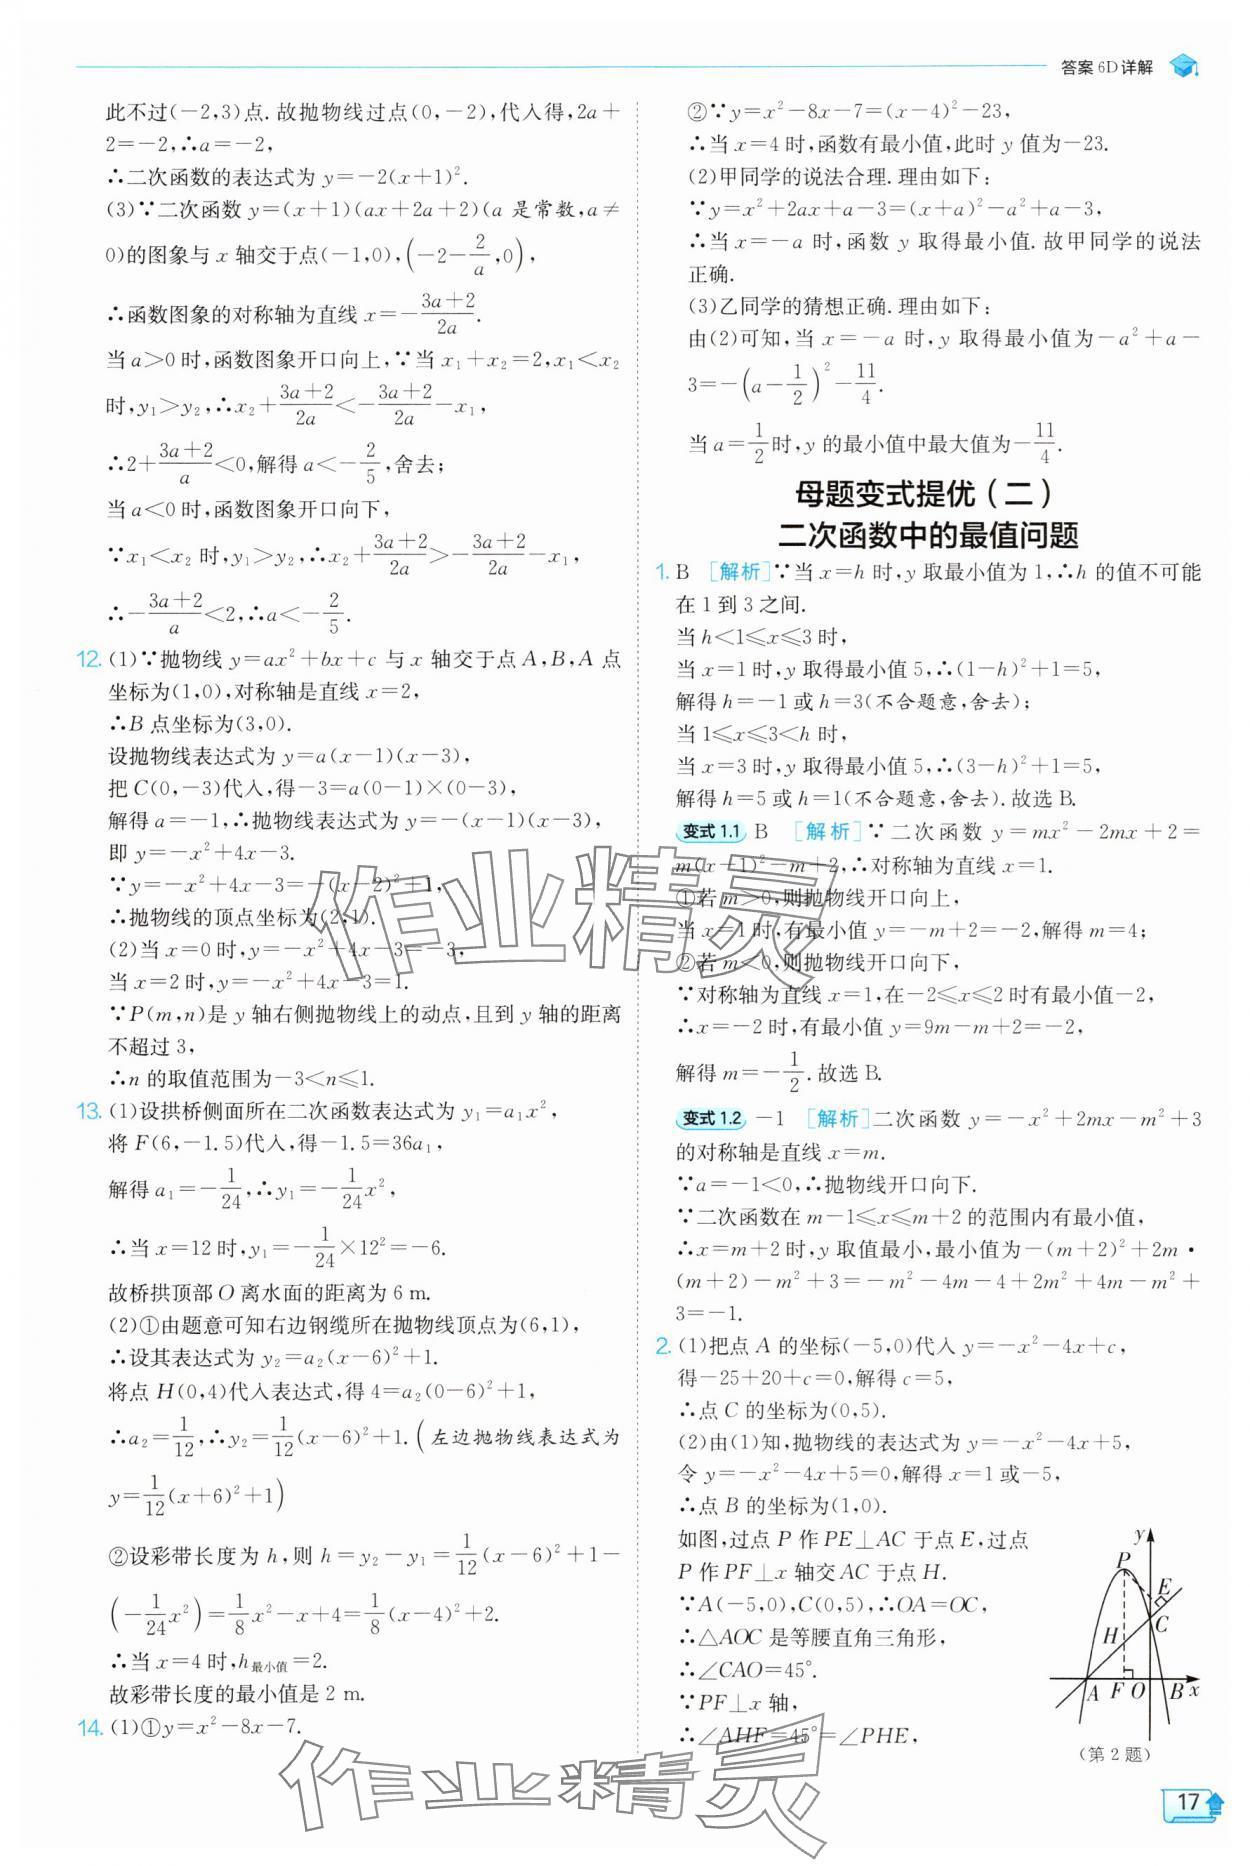 答案 6D详解
此不过(-2,3)点. 故抛物线过点(0,-2),代入得,2a+
2=-2,∴a=-2,
∴二次函数的表达式为 y=-2(x+1)².
(3)∵二次函数 y=(x+1)(ax+2a+2)(a 是常数,a≠
0)的图象与 x 轴交于点(-1,0),(-2-2/a,0),
∴函数图象的对称轴为直线 x=-(3a+2)/2a.
当 a>0 时,函数图象开口向上,∵当 x₁+x₂=2,x₁<x₂
时,y₁>y₂,∴x₂+(3a+2)/2a<-(3a+2)/2a-x₁,
∴2+(3a+2)/a<0,解得 a<-2/5,舍去;
当 a<0 时,函数图象开口向下,
∵x₁<x₂ 时,y₁>y₂,∴x₂+(3a+2)/2a>-(3a+2)/2a-x₁,
∴-(3a+2)/a<2,∴a<-2/5.
12. (1)∵抛物线 y=ax²+bx+c 与 x 轴交于点 A,B,A 点
坐标为(1,0),对称轴是直线 x=2,
∴B 点坐标为(3,0).
设抛物线表达式为 y=a(x-1)(x-3),
把 C(0,-3)代入,得-3=a(0-1)×(0-3),
解得 a=-1,∴抛物线表达式为 y=-(x-1)(x-3),
即 y=-x²+4x-3.
∵y=-x²+4x-3=-(x-2)²+1,
∴抛物线的顶点坐标为(2,1).
(2)当 x=0 时,y=-x²+4x-3=-3,
当 x=2 时,y=-x²+4x-3=1.
∵P(m,n)是 y 轴右侧抛物线上的动点,且到 y 轴的距离
不超过 3,
∴n 的取值范围为-3<n≤1.
13. (1)设拱桥侧面所在二次函数表达式为 y₁=a₁x²,
将 F(6,-1.5)代入,得-1.5=36a₁,
解得 a₁=-1/24,∴y₁=-1/24x²,
∴当 x=12 时,y₁=-1/24×12²=-6.
故桥拱顶部 O 离水面的距离为 6 m.
(2)①由题意可知右边钢缆所在抛物线顶点为(6,1),
∴设其表达式为 y₂=a₂(x-6)²+1.
将点 H(0,4)代入表达式,得 4=a₂(0-6)²+1,
∴a₂=1/12,∴y₂=1/12(x-6)²+1. (左边抛物线表达式为
y=1/12(x+6)²+1)
②设彩带长度为 h,则 h=y₂-y₁=1/12(x-6)²+1-
(-1/24x²)=1/8x²-x+4=1/8(x-4)²+2.
∴当 x=4 时,h最小值=2.
故彩带长度的最小值是 2 m.
14. (1)①y=x²-8x-7.
②∵y=x²-8x-7=(x-4)²-23,
∴当 x=4 时,函数有最小值,此时 y 值为-23.
(2)甲同学的说法合理. 理由如下:
∵y=x²+2ax+a-3=(x+a)²-a²+a-3,
∴当 x=-a 时,函数 y 取得最小值. 故甲同学的说法
正确.
(3)乙同学的猜想正确. 理由如下:
由(2)可知,当 x=-a 时,y 取得最小值为-a²+a-
3=-(a-1/2)²-11/4.
当 a=1/2时,y 的最小值中最大值为-11/4.
母题变式提优(二)
二次函数中的最值问题
1. B [解析]∵当 x=h 时,y 取最小值为 1,∴h 的值不可能
在 1 到 3 之间.
当 h<1≤x≤3 时,
当 x=1 时,y 取得最小值 5,∴(1-h)²+1=5,
解得 h=-1 或 h=3(不合题意,舍去);
当 1≤x≤3<h 时,
当 x=3 时,y 取得最小值 5,∴(3-h)²+1=5,
解得 h=5 或 h=1(不合题意,舍去). 故选 B.
变式 1.1 B [解析]∵二次函数 y=mx²-2mx+2=
m(x-1)²-m+2,∴对称轴为直线 x=1.
①若 m>0,则抛物线开口向上,
当 x=1 时,有最小值 y=-m+2=-2,解得 m=4;
②若 m<0,则抛物线开口向下,
∵对称轴为直线 x=1,在-2≤x≤2 时有最小值-2,
∴x=-2 时,有最小值 y=9m-m+2=-2,
解得 m=-1/2. 故选 B.
变式 1.2 -1 [解析]二次函数 y=-x²+2mx-m²+3
的对称轴是直线 x=m.
∵a=-1<0,∴抛物线开口向下.
∵二次函数在 m-1≤x≤m+2 的范围内有最小值,
∴x=m+2 时,y 取值最小,最小值为-(m+2)²+2m·
(m+2)-m²+3=-m²-4m-4+2m²+4m-m²+
3=-1.
2. (1)把点 A 的坐标(-5,0)代入 y=-x²-4x+c,
得-25+20+c=0,解得 c=5,
∴点 C 的坐标为(0,5).
(2)由(1)知,抛物线的表达式为 y=-x²-4x+5,
令 y=-x²-4x+5=0,解得 x=1 或-5,
∴点 B 的坐标为(1,0).
如图,过点 P 作 PE⊥AC 于点 E,过点
P 作 PF⊥x 轴交 AC 于点 H.
∵A(-5,0),C(0,5),∴OA=OC,
∴△AOC 是等腰直角三角形,
∴∠CAO=45°.
∵PF⊥x 轴,
∴∠AHF=45°=∠PHE,
y
P
E
H
C
A F O B x
(第 2 题)
17
作业精灵
作业精灵